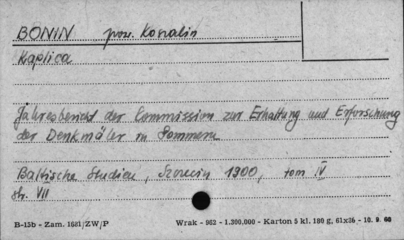 BONIN pow. Koszalin
Kaplica
Jahresbericht der Commission zur Erhaltung und Erforschung
der Denkmäler in Pommern
Baltische Studien, Szczecin 1900, tom IV
str. VII
B-15b - Zam. 1681/ZW/P Wrak - 962 - 1.300.000 - Karton 5 kl. 180 g, 61x86 - 10. 9. 66